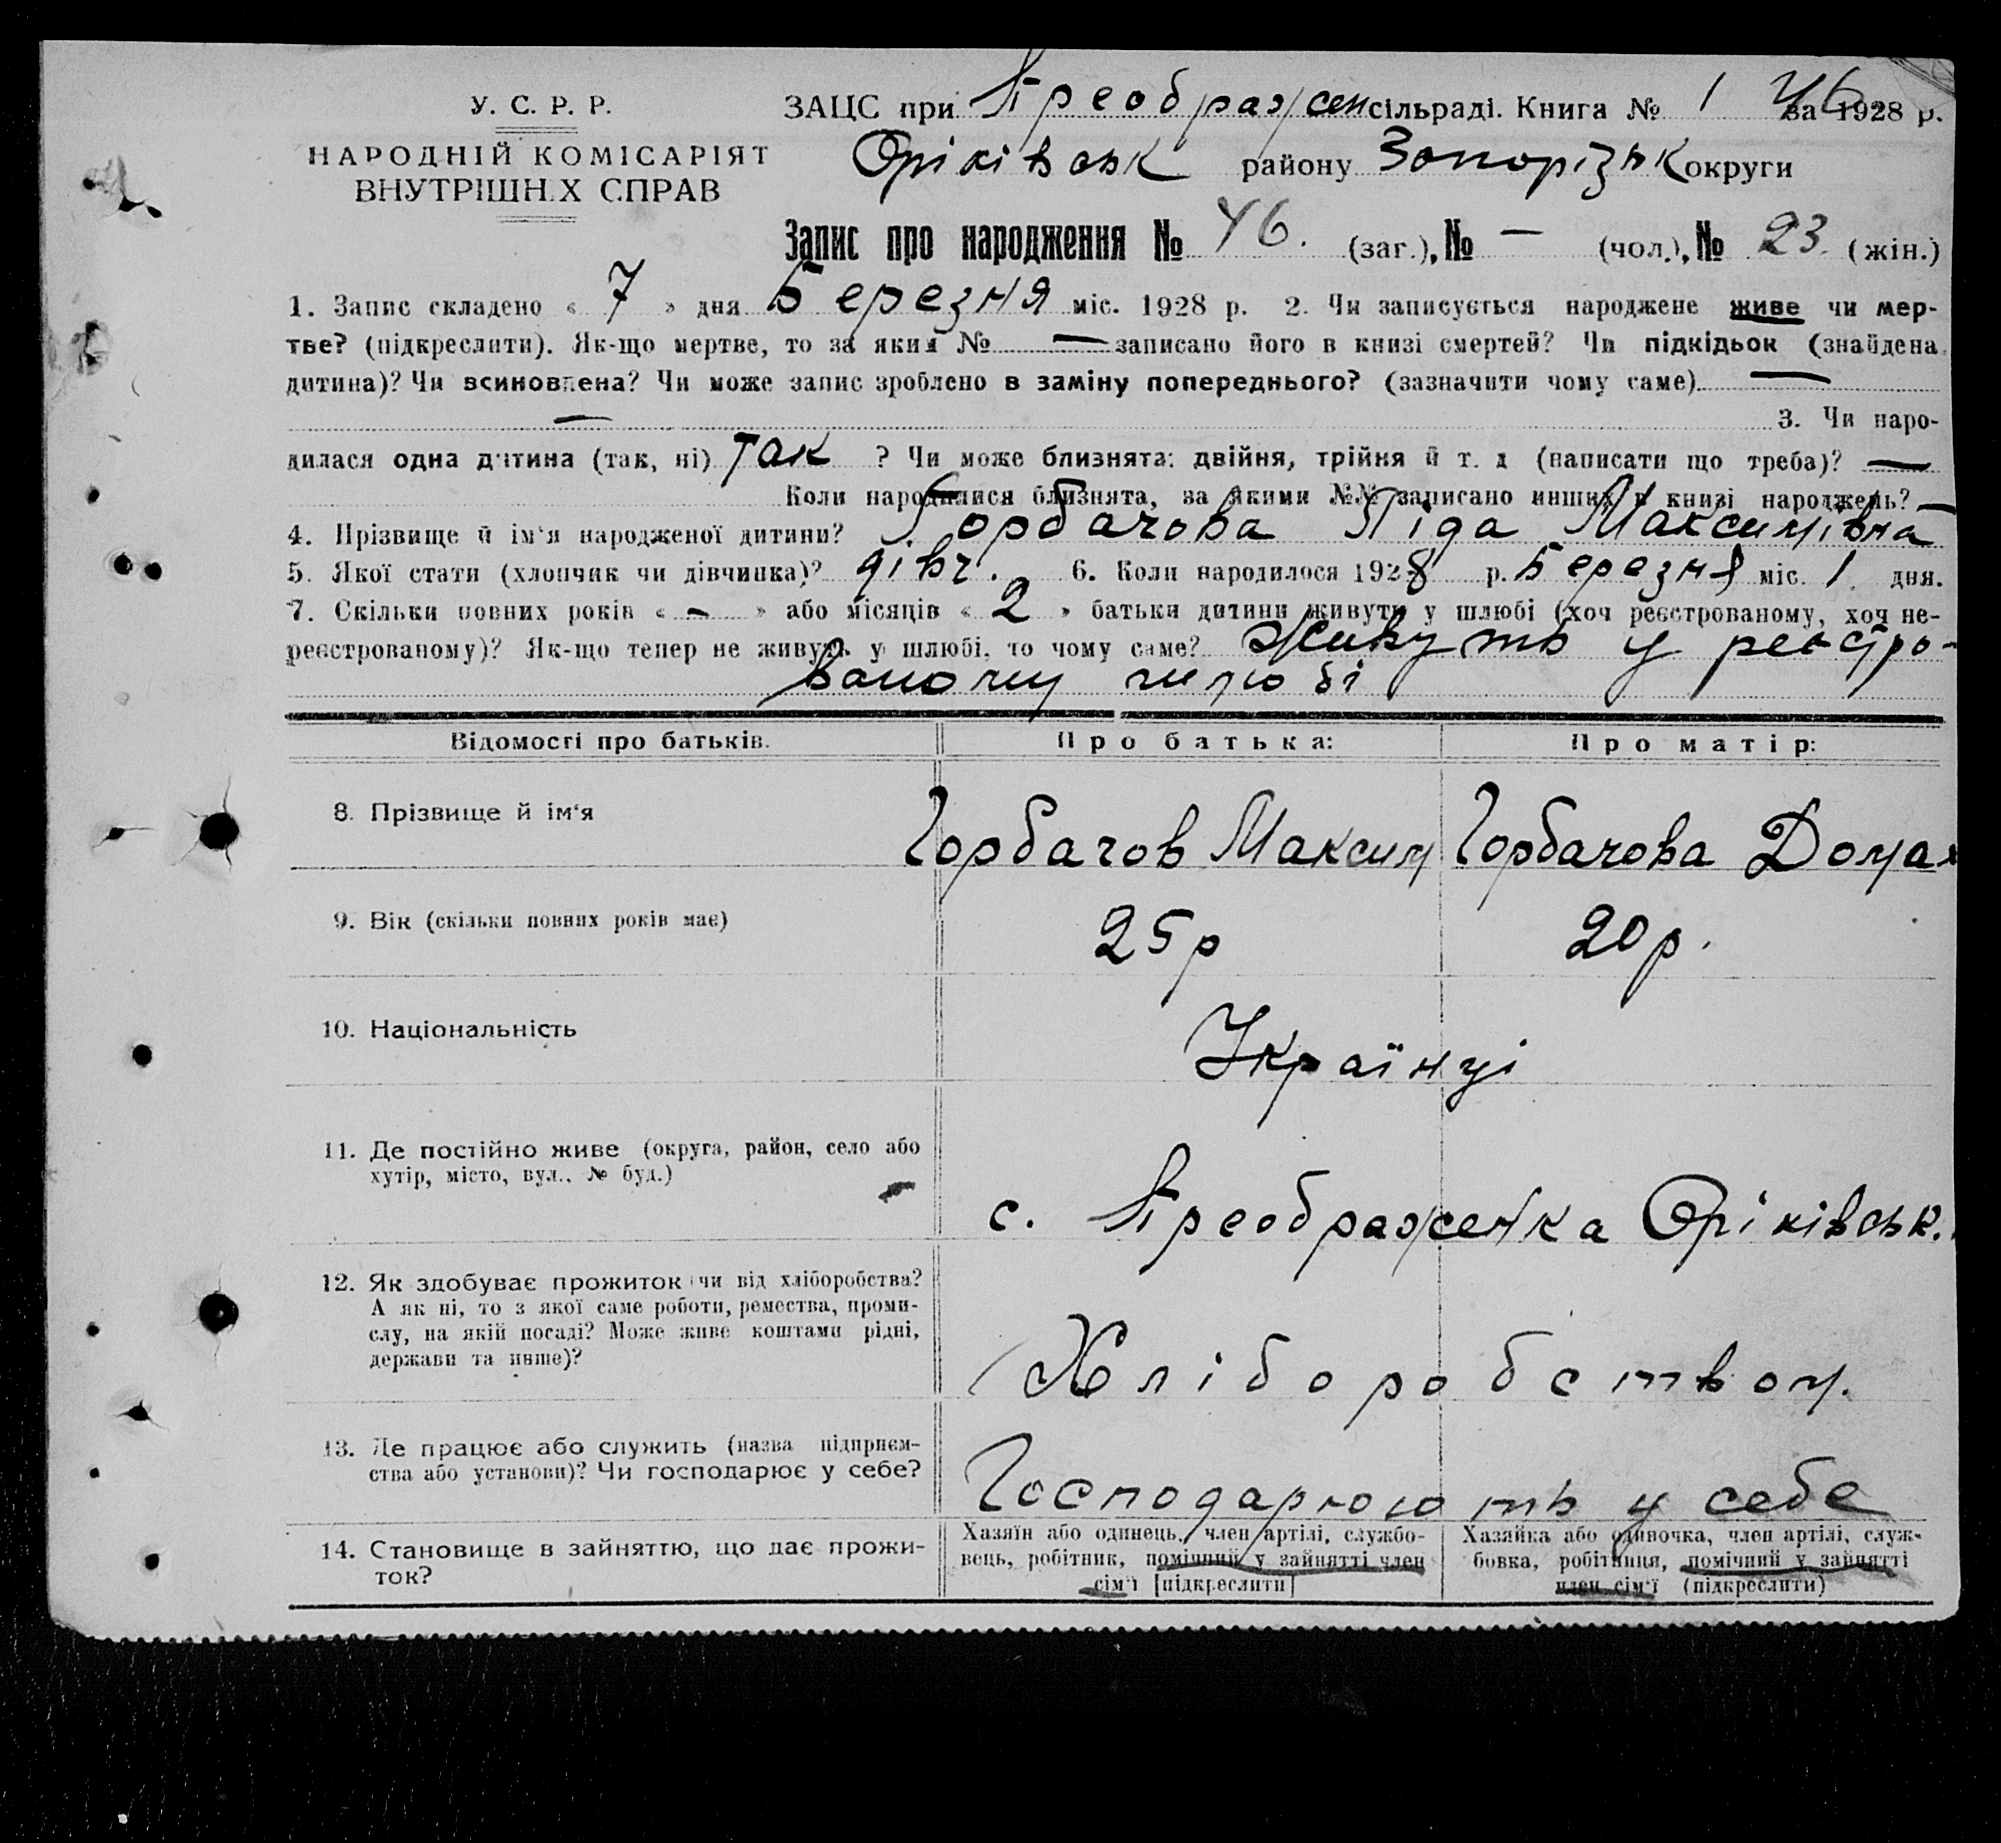 У. С. Р. Р.
НАРОДНІЙ КОМІСАРІЯТ
ВНУТРІШН.Х СПРАВ
46
ЗАЦС при Преображен сільраді. Книга № 1 за 1928 р.
Оріківськ району Запорізьк округи
Запис про народження № 46. (заг.), № — (чол.), № 23. (жін.)
1. Запис складено « 7 » дня Березня міс. 1928 р. 2. Чи записується народжене живе чи мер-
тве? (підкреслити). Як-що мертве, то за яким № — записано його в книзі смертей? Чи підкідьок (знайдена
дитина)? Чи всиновлена? Чи може запис зроблено в заміну попереднього? (зазначити чому саме) —
— 3. Чи наро-
дилася одна дитина (так, ні) Так ? Чи може близнята: двійня, трійня й т. д (написати що треба)? —
Коли народилися близнята, за якими №№ записано инших в книзі народжень? —
4. Прізвище й ім'я народженої дитини? Горбачова Ліда Максимівна
5. Якої стати (хлопчик чи дівчинка)? дівч. 6. Коли народилося 1928 р. Березня міс. 1 дня.
7. Скільки повних років « - » або місяців « 2 » батьки дитини живуть у шлюбі (хоч реєстрованому, хоч не-
реєстрованому)? Як-що тепер не живуть у шлюбі, то чому саме? Живуть у реєстро-
ваному шлюбі
Відомості про батьків. Про батька: Про матір:
8. Прізвище й ім'я Горбачов Максим Горбачова Домах
9. Вік (скільки повних років має) 25р 20р.
10. Національність Українці
11. Де постійно живе (округа, район, село або
хутір, місто, вул., № буд.)
с. Преображенка Оріківськ.
12. Як здобуває прожиток (чи від хліборобства?
А як ні, то з якої саме роботи, ремества, проми-
слу, на якій посаді? Може живе коштами рідні,
держави та инше)?
Хліборобством.
13. Де працює або служить (назва підприєм-
ства або установи)? Чи господарює у себе?
Господарюють у себе
14. Становище в зайняттю, що дає прожи-
ток?
Хазяїн або одинець, член артілі, службо-
вець, робітник, помічний у зайнятті член
сім'ї [підкреслити]
Хазяйка або одиночка, член артілі, служ-
бовка, робітниця, помічний у зайнятті
член сім'ї (підкреслити)